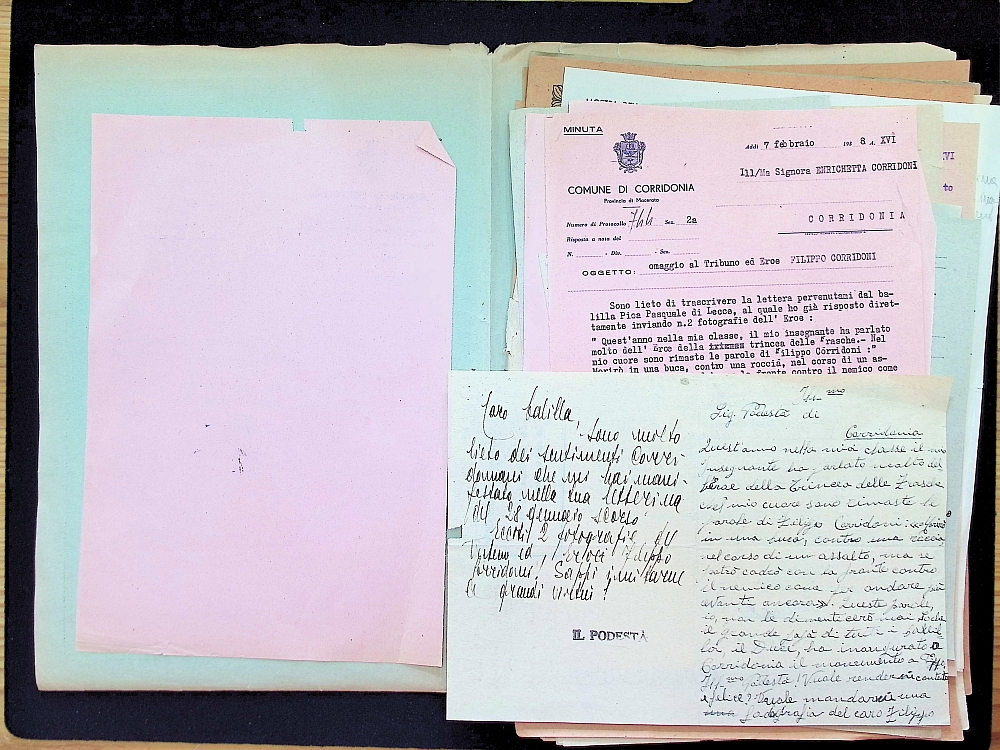 MINUTA
Addì 7 febbraio 193 8 A. XVI
Ill/Ma Signora ENRICHETTA CORRIDONI
COMUNE DI CORRIDONIA
Provincia di Macerata
CORRIDONIA
Numero di Protocollo 744 Sez. 2a
Risposta a nota del
N. - Div. - Sez.
OGGETTO: omaggio al Tribuno ed Eroe FILIPPO CORRIDONI
Sono lieto di trascrivere la lettera pervenutami dal ba-
lilla Pica Pasquale di Lecce, al quale ho già risposto diret-
tamente inviando n.2 fotografie dell' Eroe :
" Quest'anno nella mia classe, il mio insegnante ha parlato
molto dell' Eroe della trincea delle frasche.- Nel
mio cuore sono rimaste le parole di Filippo Corridoni :"
Morirò in una buca, contro una roccia, nel corso di un as-
fronte contro il nemico come
XVI
to
Caro balilla,
sono molto
lieto dei sentimenti Corri-
doniani che mi hai mani-
festato nella tua letterina
del 28 gennaio scorso
Eccoti 2 fotografie del
Tribuno ed Eroe Filippo
Corridoni! Sappi imitarne
le grandi virtù!
IL PODESTÀ
Ill.mo
Sig. Podestà di
Corridonia
Quest'anno nella mia classe il mio
insegnante ha parlato molto del
l'eroe della Trincea delle Frasche
Nel mio cuore sono rimaste le
parole di Filippo Corridoni:
in una buca, contro una roccia
nel corso di un assalto, ma se
potrò cadrò con la fronte contro
il nemico come per andare più
avanti ancora». Queste parole,
io, non le dimenticerò mai
il grande papà di tutti i balil-
la, il Duce, ha inaugurato a
Corridonia il monumento a
Ill.mo Podestà! Vuole rendermi contento
e felice? Vuole mandarmi una
fotografia del caro Filippo